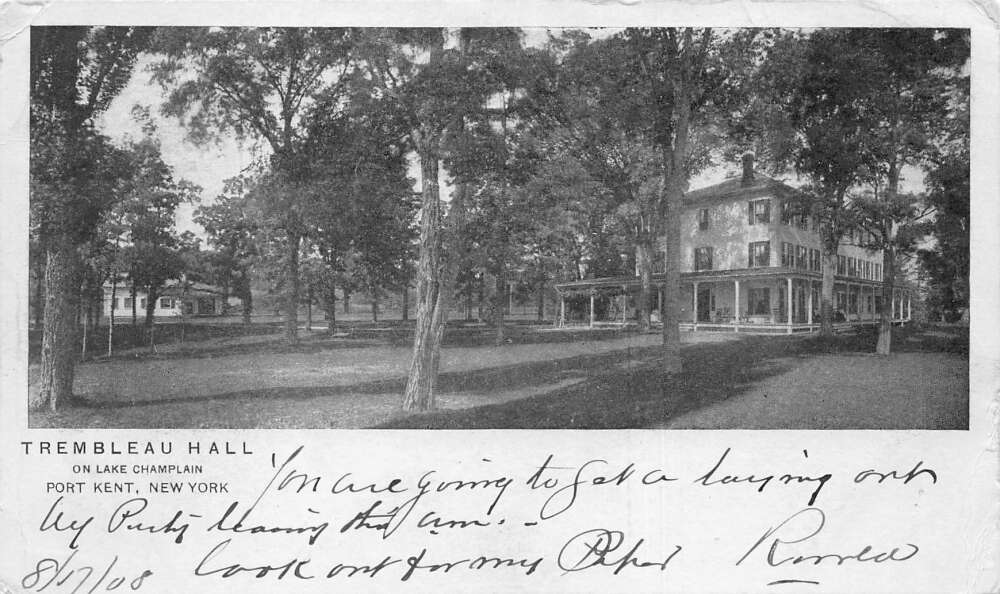 TREMBLEAU HALL
ON LAKE CHAMPLAIN
PORT KENT, NEW YORK
You are going to get a laying out
by Party leaving this am. -
Look out for my
8/17/08